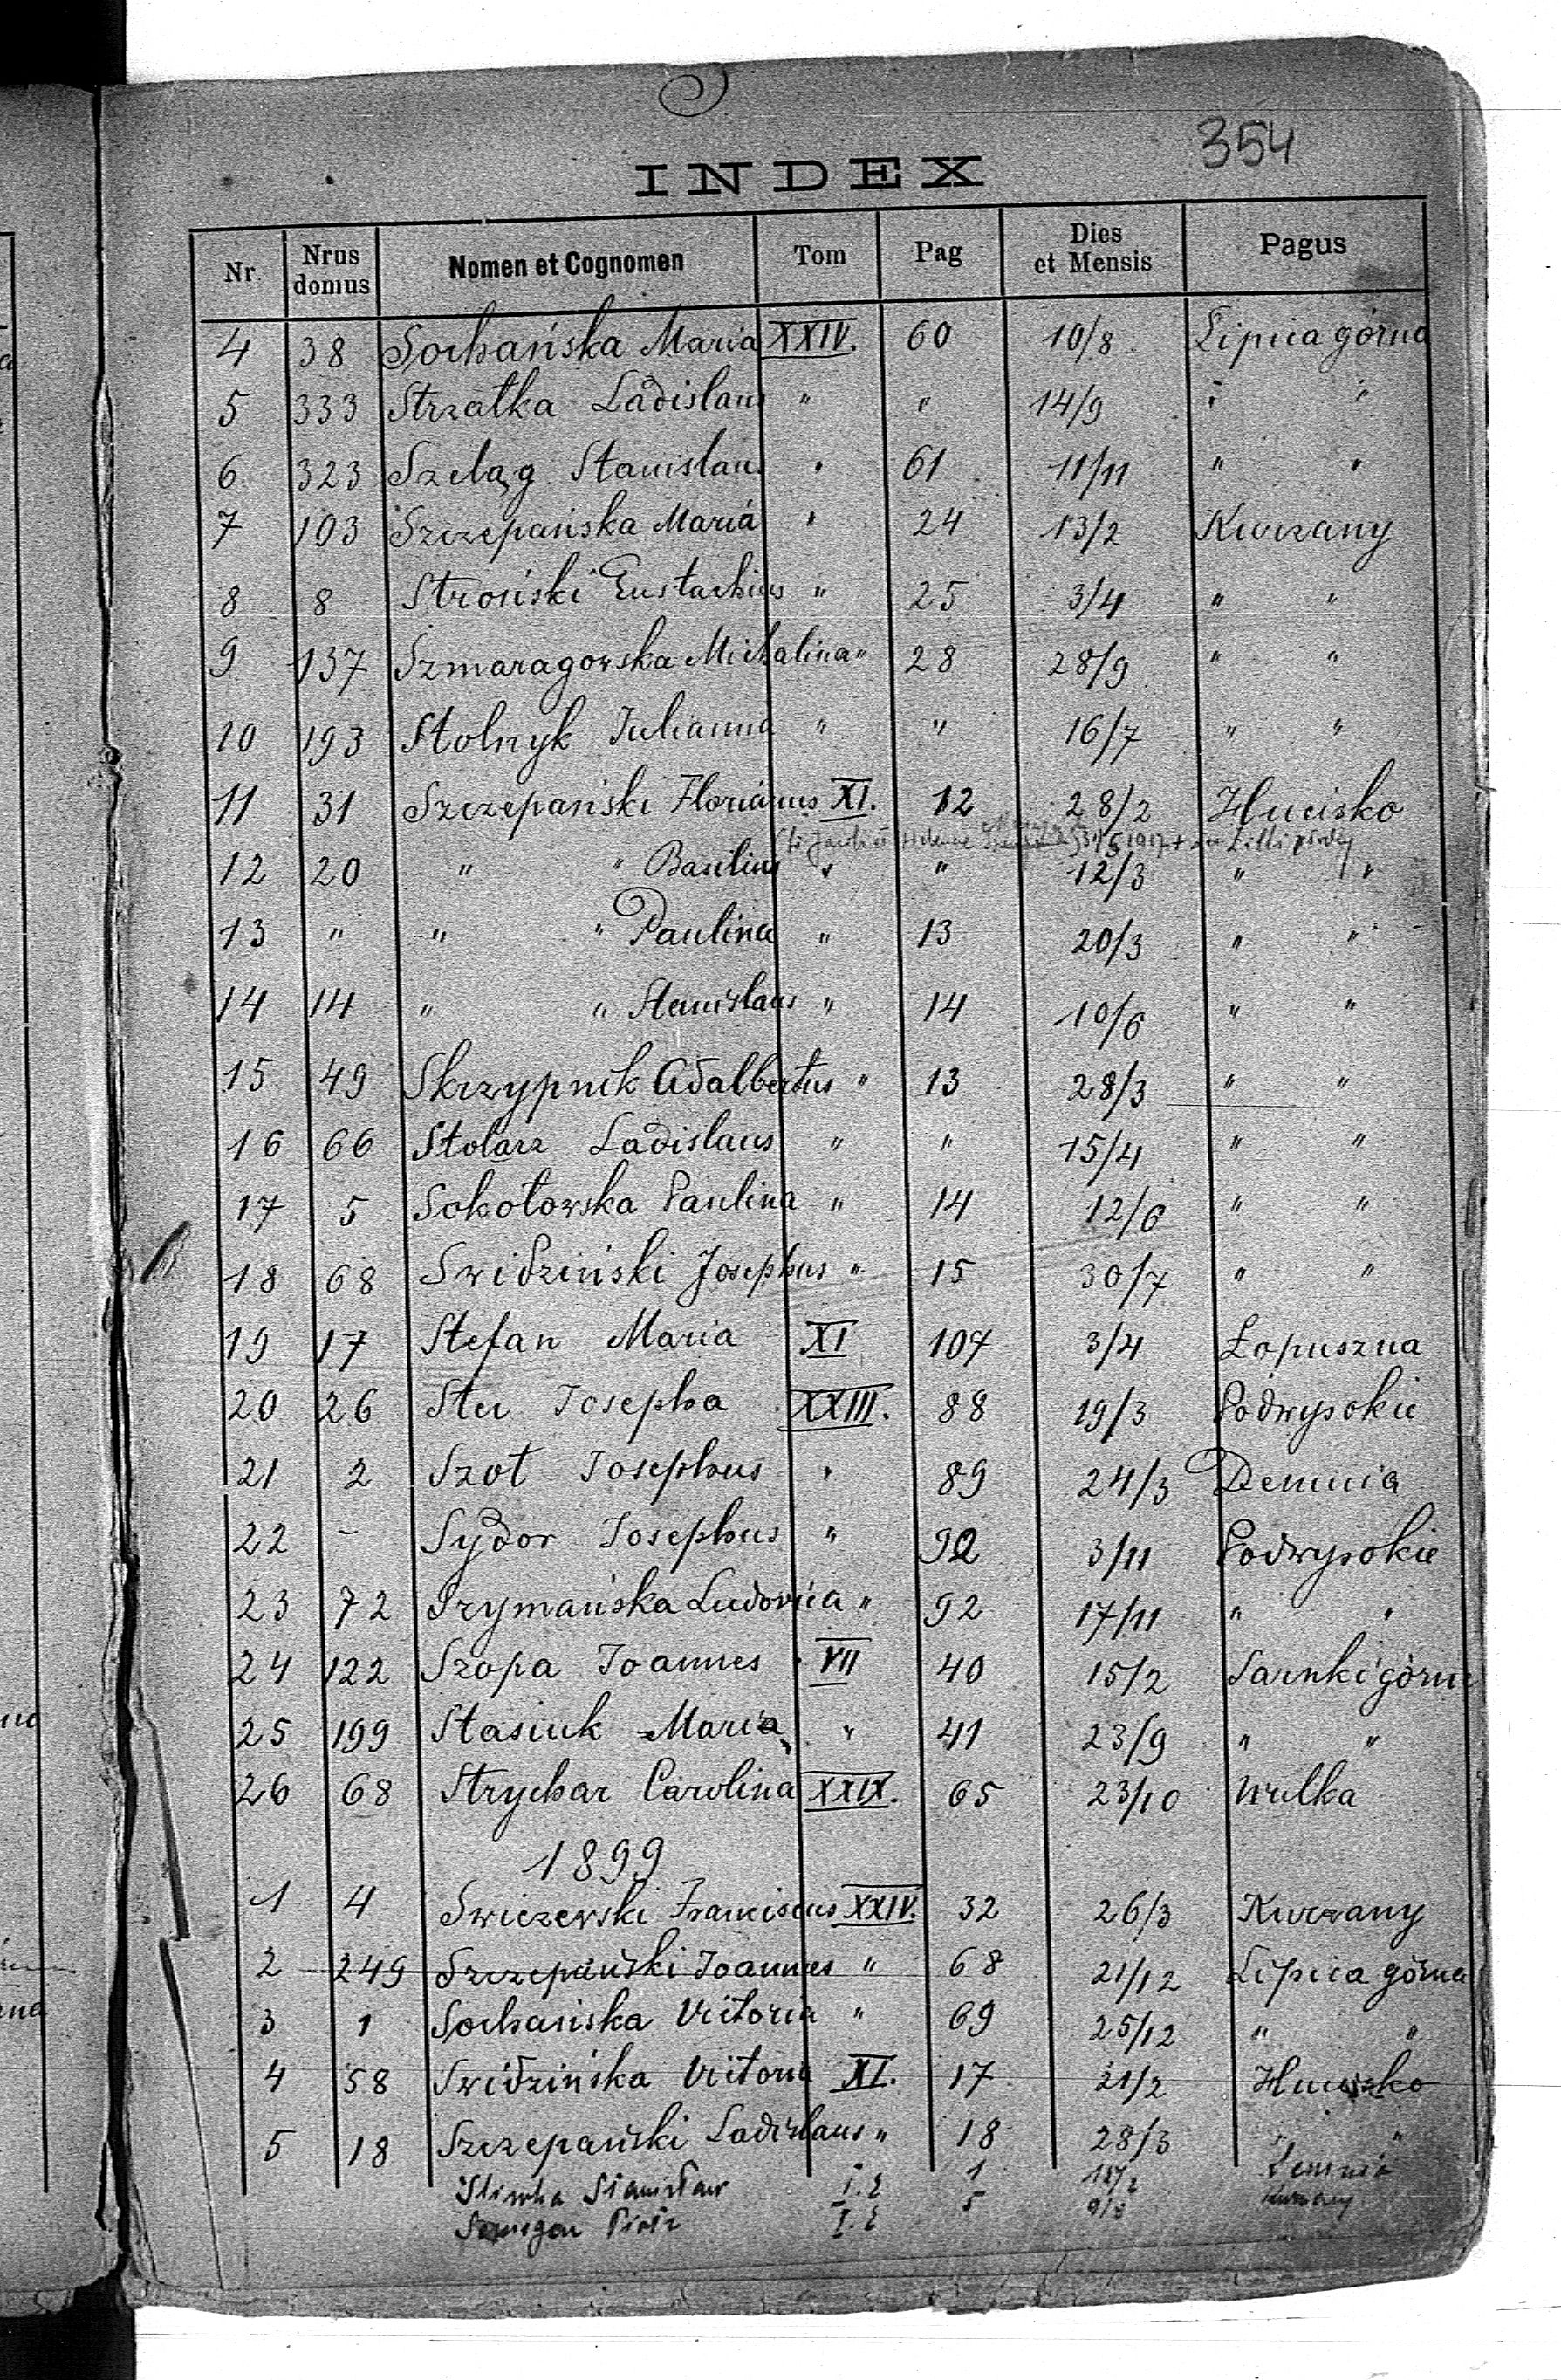 S
354
INDEX
Nr Nrus domus Nomen et Cognomen Tom Pag Dies et Mensis Pagus
4 38 Sochańska Maria XXIV. 60 10/8 Lipica górna
5 333 Strzałka Ladislaus " " 14/9 " "
6 323 Szeląg Stanislaus " 61 11/11 " "
7 103 Szczepańska Maria " 24 13/2 Kurzany
8 8 Stroński Eustachius " 25 3/4 " "
9 137 Szmaragowska Michalina " 28 28/9 " "
10 193 Stolnyk Julianna " " 16/7 " "
11 31 Szczepański Florianus XI. 12 28/2 Hucisko
Helena 31/5 1917
12 20 " " Basilius " " 12/3 " "
13 " " " Paulina " 13 20/3 " "
14 14 " " Stanislaus " 14 10/6 " "
15 49 Skrzypnik Adalbertus " 13 28/3 " "
16 66 Stolarz Ladislaus " " 15/4 " "
17 5 Sokołowska Paulina " 14 12/6 " "
18 68 Swidziński Josephus " 15 30/7 " "
19 17 Stefan Maria XI 107 3/4 Łopuszna
20 26 Ster Josepha XXIII. 88 19/3 Podwysokie
21 2 Szot Josephus " 89 24/3 Demnia
22 - Sydor Josephus " 92 3/11 Podwysokie
23 72 Szymańska Ludovica " 92 17/11 " "
24 122 Szopa Joannes VII 40 15/2 Sarnki górne
25 199 Stasiuk Maria " 41 23/9 " "
26 68 Strychar Carolina XXIX. 65 23/10 Wulka
1899
1 4 Swiczewski Franciscus XXIV. 32 26/3 Kurzany
2 249 Szczepański Joannes " 68 21/12 Lipica górna
3 1 Sochańska Victoria " 69 25/12 " "
4 58 Swidzińska Victoria XI. 17 21/2 Hucisko
5 18 Szczepański Ladislaus " 18 28/3 " "
Stanisław I. E 1 Demnia
Piotr I. E 5 Kurzany